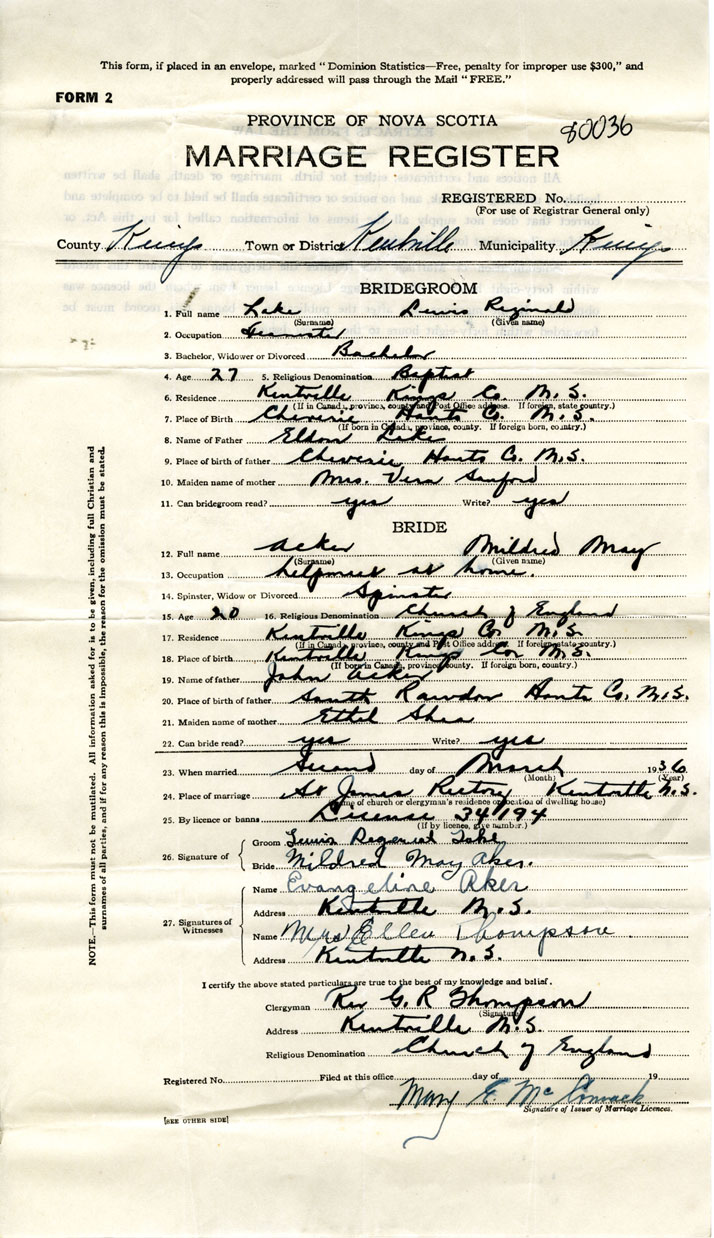 This form, if placed in an envelope, marked "Dominion Statistics—Free, penalty for improper use $300," and
properly addressed will pass through the Mail "FREE."
FORM 2
PROVINCE OF NOVA SCOTIA
80036
MARRIAGE REGISTER
REGISTERED No.
(For use of Registrar General only)
County Kings Town or District Kentville Municipality Kings
BRIDEGROOM
1. Full name Lake Lewis Reginald
(Surname) (Given name)
2. Occupation Teamster
3. Bachelor, Widower or Divorced Bachelor
4. Age 27 5. Religious Denomination Baptist
6. Residence Kentville Kings Co. N.S.
(If in Canada, province, county and Post Office address. If foreign, state country.)
7. Place of Birth Cheverie Hants Co. N.S.
(If born in Canada, province, county. If foreign born, country.)
8. Name of Father Eldon Lake
9. Place of birth of father Cheverie Hants Co. N.S.
10. Maiden name of mother Mrs. Vera Sanford
11. Can bridegroom read? yes Write? yes
BRIDE
12. Full name Acker Mildred May
(Surname) (Given name)
13. Occupation helpmeet at home.
14. Spinster, Widow or Divorced Spinster
15. Age 20 16. Religious Denomination Church of England
17. Residence Kentville Kings Co. N.S.
(If in Canada, province, county and Post Office address. If foreign, state country.)
18. Place of birth Kentville Kings Co. N.S.
(If born in Canada, province, county. If foreign born, country.)
19. Name of father John Acker
20. Place of birth of father South Rawdon Hants Co. N.S.
21. Maiden name of mother Ethel Shea
22. Can bride read? yes Write? yes
23. When married Second day of March 1936
(Month) (Year)
24. Place of marriage St James Rectory Kentville N.S.
(Name of church or clergyman's residence or location of dwelling house)
25. By licence or banns License 34194
(If by licence, give number.)
26. Signature of
Groom Lewis Lake
Bride Mildred May Aker.
27. Signatures of Witnesses
Name Evangeline Aker
Address Kentville N.S.
Name Mrs Ellen Thompson.
Address Kentville N.S.
I certify the above stated particulars are true to the best of my knowledge and belief.
Clergyman Rev G. R Thompson
(Signature)
Address Kentville N.S.
Religious Denomination Church of England
Registered No. Filed at this office day of 19
Mary E. McCormack
Signature of Issuer of Marriage Licences.
[SEE OTHER SIDE]
NOTE.—This form must not be mutilated. All information asked for is to be given, including full Christian and
surnames of all parties, and if for any reason this is impossible, the reason for the omission must be stated.